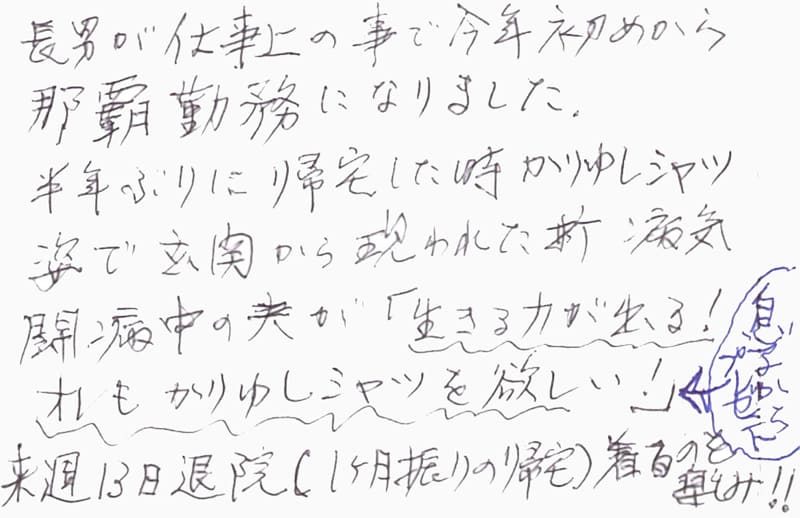 長男が仕事上の事で今年初めから
那覇勤務になりました.
半年ぶりに帰宅した時かりゆしシャツ
姿で玄関から現われた折 病気
闘病中の夫が「生きる力が出る!
オレもかりゆしシャツを欲しい!」
来週13日退院(1ヶ月振りの帰宅)着るのを
楽しみ!!